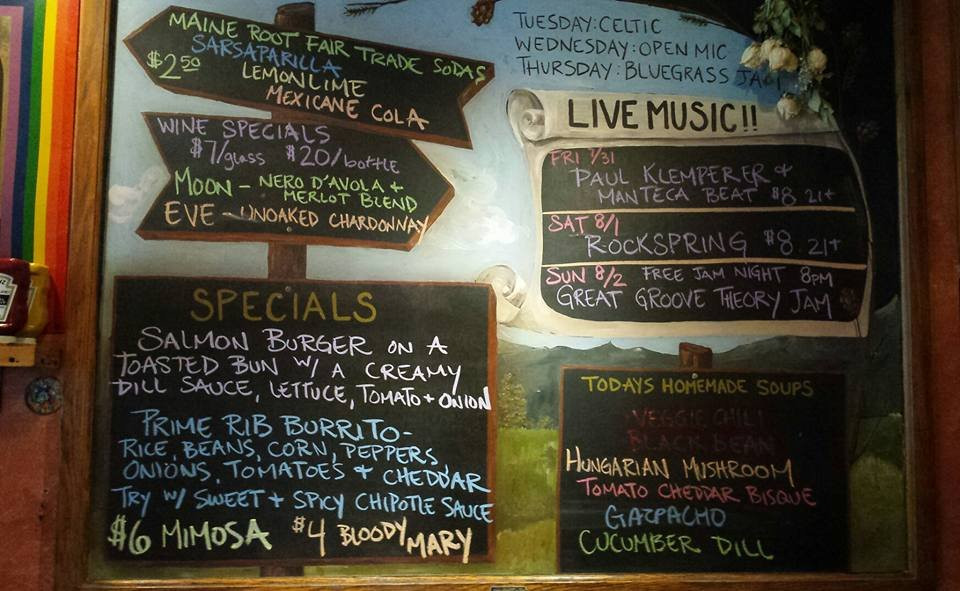 MAINE ROOT FAIR TRADE SODAS
SARSAPARILLA
$2.50
LEMON LIME
MEXICANE COLA
WINE SPECIALS
$7/glass $20/bottle
MOON - NERO D'AVOLA +
MERLOT BLEND
EVE - UNOAKED CHARDONNAY
SPECIALS
SALMON BURGER ON A
TOASTED BUN W/ A CREAMY
DILL SAUCE, LETTUCE, TOMATO + ONION
PRIME RIB BURRITO-
RICE, BEANS, CORN, PEPPERS,
ONIONS, TOMATOES + CHEDDAR
TRY W/ SWEET + SPICY CHIPOTLE SAUCE
$6 MIMOSA $4 BLOODY MARY
TUESDAY: CELTIC
WEDNESDAY: OPEN MIC
THURSDAY: BLUEGRASS JAM
LIVE MUSIC!!
FRI 7/31
PAUL KLEMPERER +
MANTECA BEAT $8 21+
SAT 8/1
ROCKSPRING $8 21+
SUN 8/2 FREE JAM NIGHT 8PM
GREAT GROOVE THEORY JAM
TODAYS HOMEMADE SOUPS
VEGGIE CHILI
BLACK BEAN
HUNGARIAN MUSHROOM
TOMATO CHEDDAR BISQUE
GAZPACHO
CUCUMBER DILL